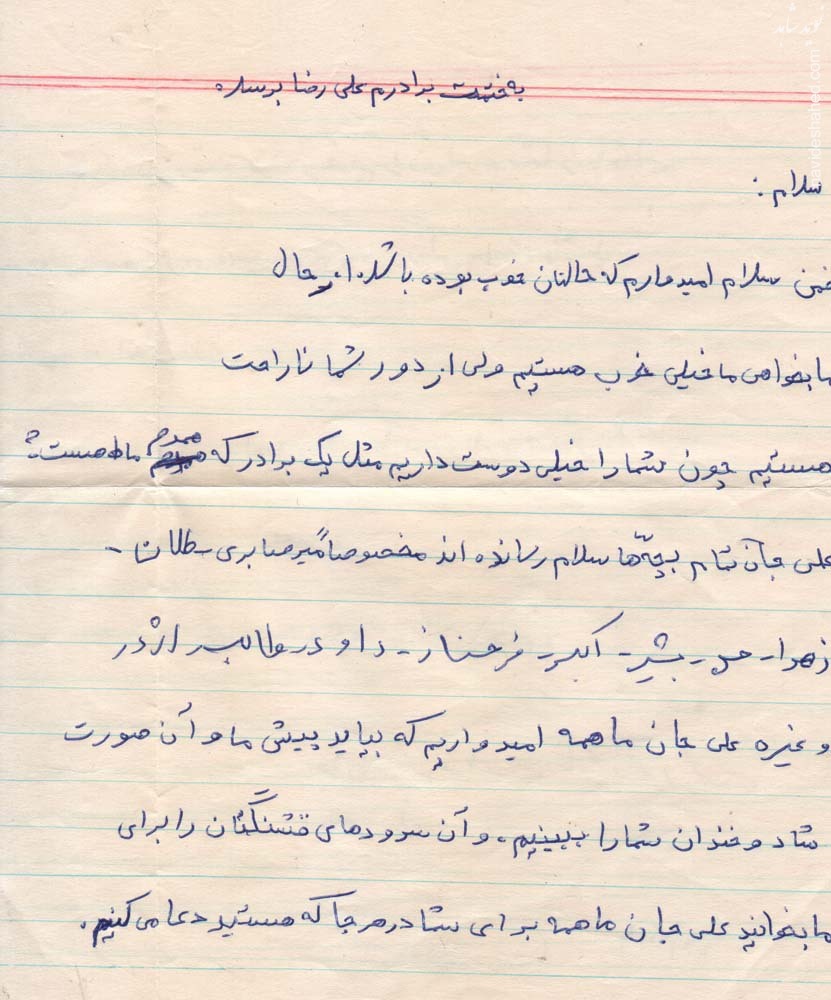 به خدمت برادرم علی رضا برسد.
سلام :
ضمن سلام امیدوارم که حالتان خوب بوده باشد. از حال
ما بخواهی ما خیلی خوب هستیم ولی از دور شما ناراحت
هستیم چون شما را خیلی دوست داریم مثل یک برادر که همدم ما هست.
علی جان تمام بچه‌ها سلام رسانده اند مخصوصاً صابری -
زهرا - - بشیر - اکبر - فرحناز - داود - طالب - اژدر
و غیره علی جان ما همه امیدواریم که بیاید پیش ما و آن صورت
شاد و خندان شما را ببینیم. و آن سرودهای قشنگتان را برای
ما بخوانید علی جان ما همه برای شما در هر جا که هستید دعا می کنیم.
navideshahed.com